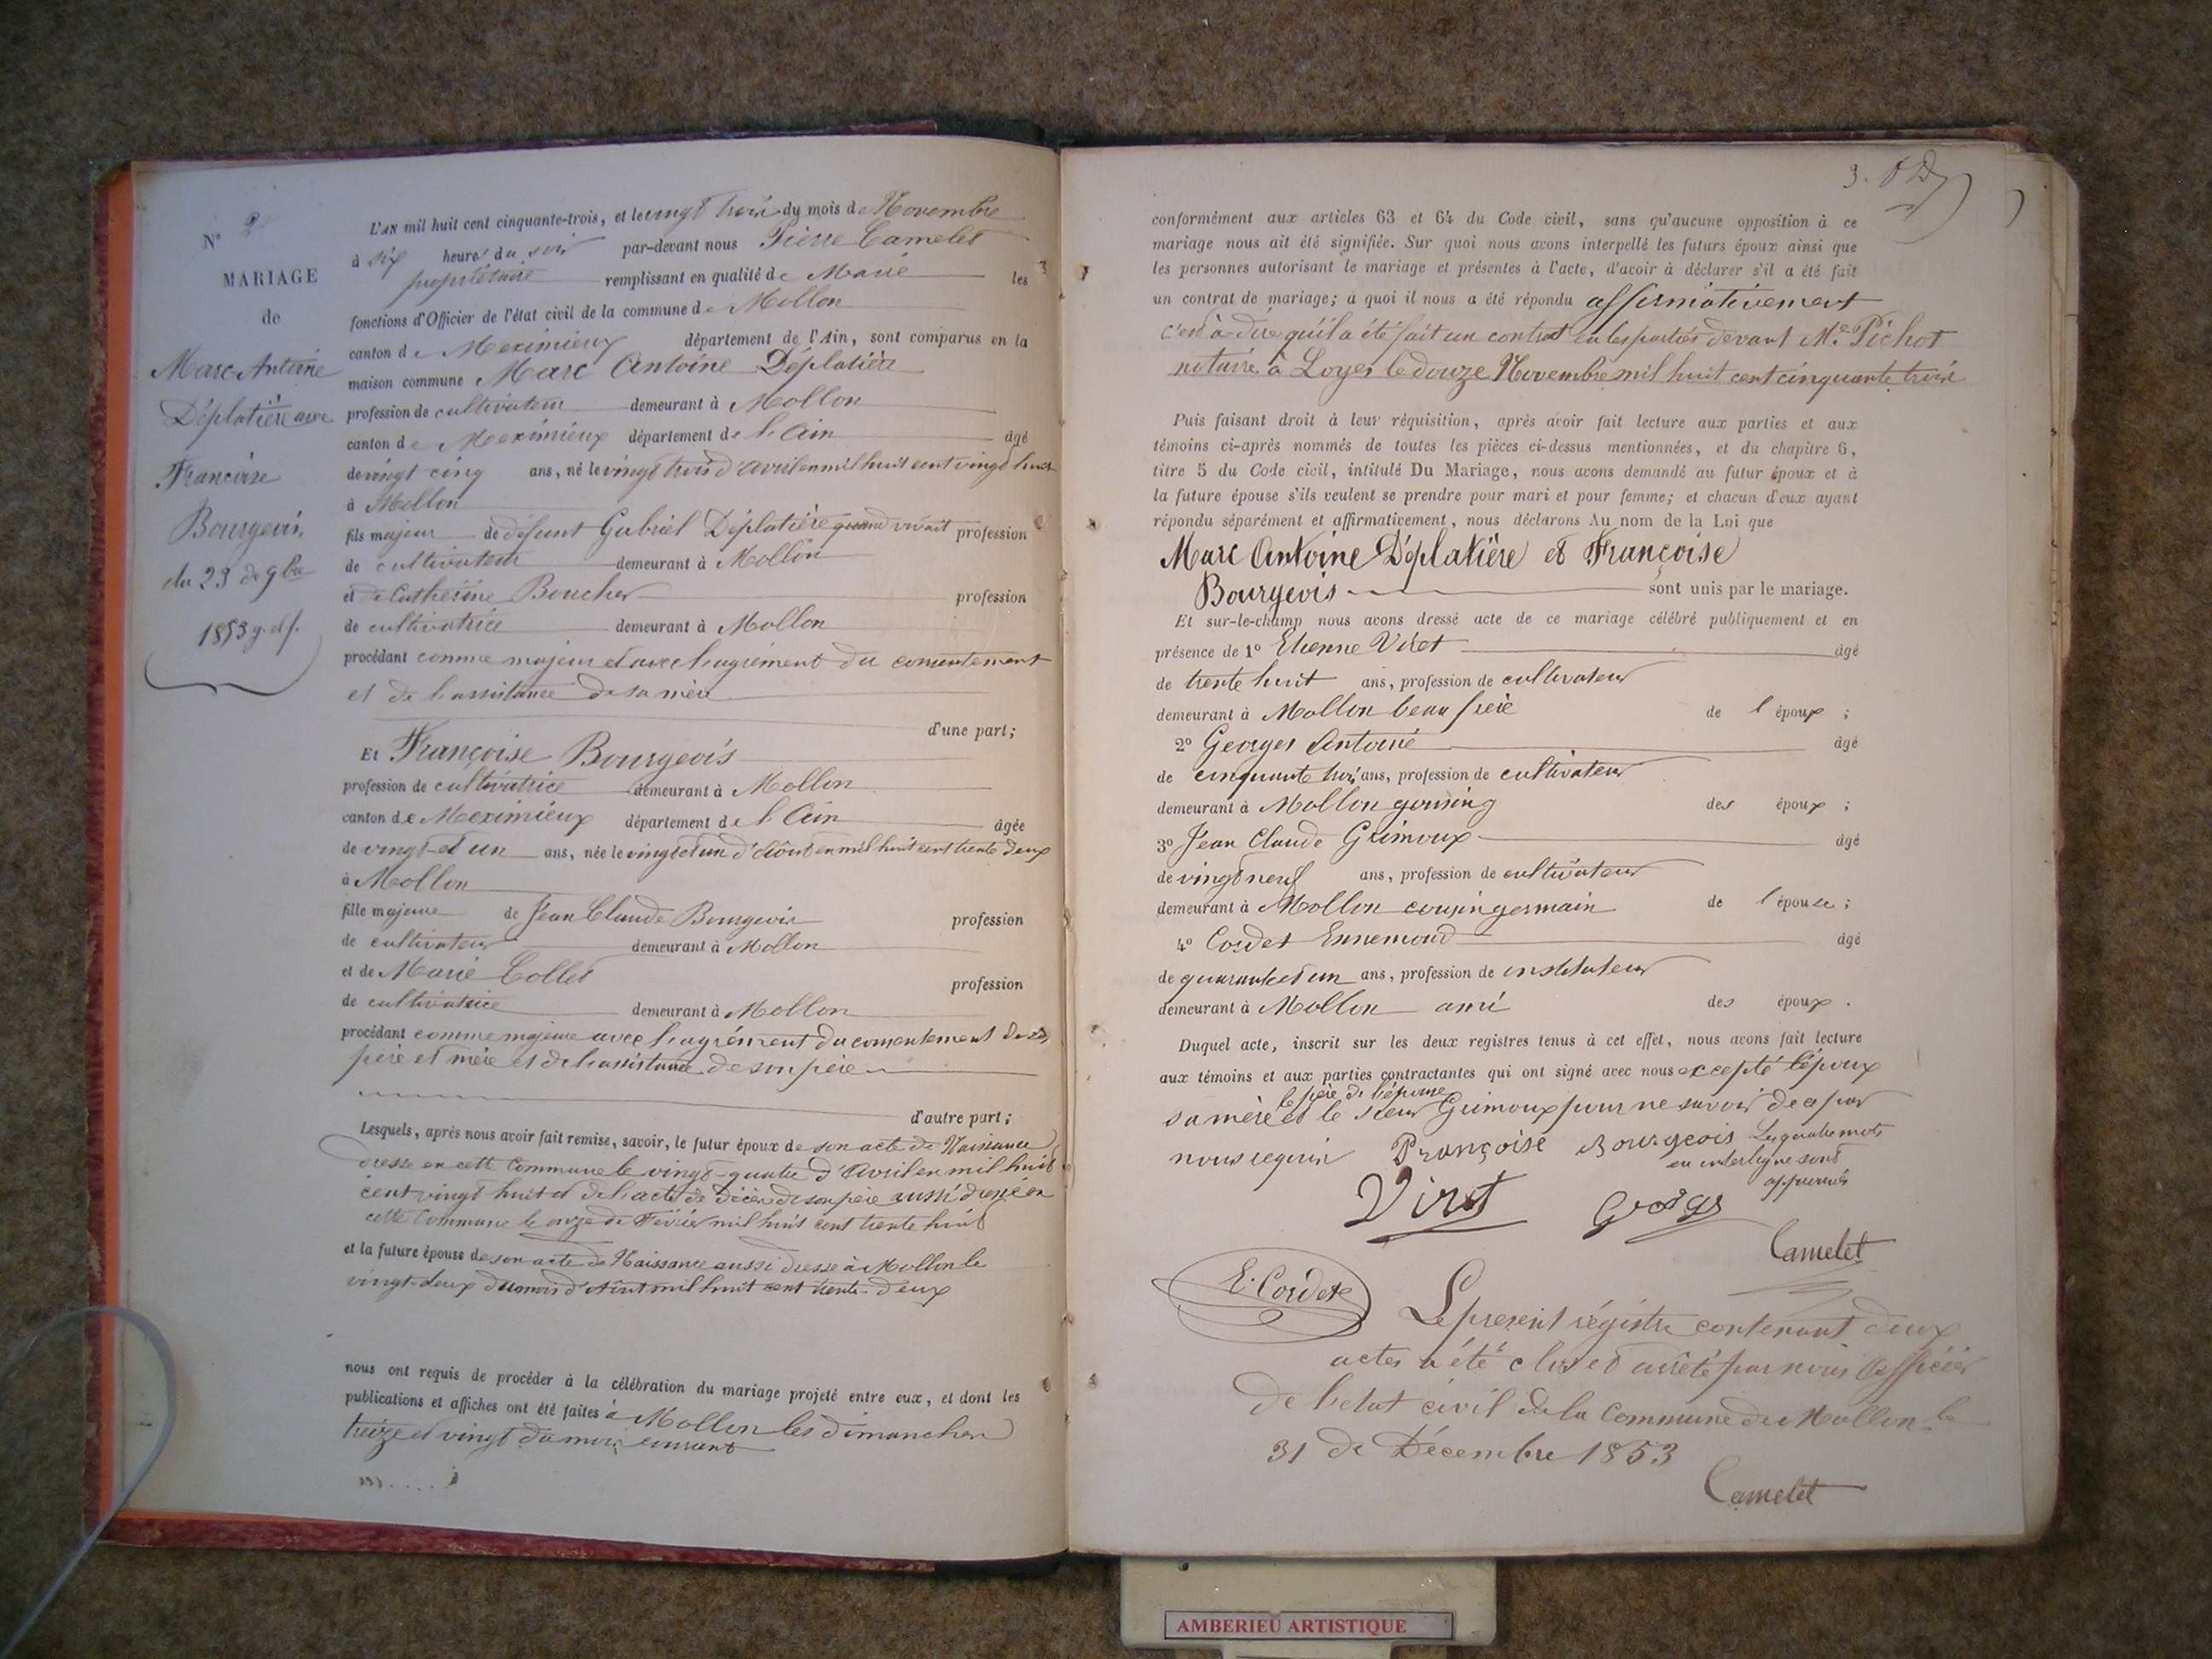 N° 2
MARIAGE
de
Marc Antoine
Déplatière avec
Francoise
Bourgeois,
du 23 de 9bre
1853
L'AN mil huit cent cinquante-trois, et le vingt trois du mois de Novembre
à six heures du soir par-devant nous Pierre Camelet
propriétaire remplissant en qualité de Maire les
fonctions d'Officier de l'état civil de la commune de Mollon
canton de Meximieux département de l'Ain, sont comparus en la
maison commune Marc Antoine Déplatière
profession de cultivateur demeurant à Mollon
canton de Meximieux département de l'Ain âgé
de vingt cinq ans, né le vingt trois d'avril en mil huit cent vingt huit
à Mollon
fils majeur de défunt Gabriel Déplatière quand vivait profession
de cultivateur demeurant à Mollon
et de Cathérine Boucher profession
de cultivatrice demeurant à Mollon
procédant comme majeur et avec l'agrément du consentement
et de l'assistance de sa mère
d'une part;
Et Françoise Bourgeois
profession de cultivatrice demeurant à Mollon
canton de Meximieux département de l'Ain âgée
de vingt et un ans, née le vingt et un d'Août en mil huit cent trente deux
à Mollon
fille majeure de Jean Claude Bourgeois profession
de cultivateur demeurant à Mollon
et de Marie Collet profession
de cultivatrice demeurant à Mollon
procédant comme majeure avec l'agrément du consentement de ses
père et mère et de l'assistance de son père
d'autre part;
Lesquels, après nous avoir fait remise, savoir, le futur époux de son acte de Naissance
dressé en cette Commune le vingt-quatre d'Avril en mil huit
cent vingt huit et de l'acte de décès de son père aussi dressé en
cette Commune le onze de Février mil huit cent trente huit
et la future épouse de son acte de Naissance aussi dressé à Mollon le
vingt-deux du mois d'Août mil huit cent trente-deux
nous ont requis de procéder à la célébration du mariage projeté entre eux, et dont les
publications et affiches ont été faites à Mollon les dimanches
treize et vingt du mois courant
3.
conformément aux articles 63 et 64 du Code civil, sans qu'aucune opposition à ce
mariage nous ait été signifiée. Sur quoi nous avons interpellé les futurs époux ainsi que
les personnes autorisant le mariage et présentes à l'acte, d'avoir à déclarer s'il a été fait
un contrat de mariage; à quoi il nous a été répondu affirmativement
c'est à dire qu'il a été fait un contrat en les parties devant Me. Pichot
notaire à Loyes le douze Novembre mil huit cent cinquante trois
Puis faisant droit à leur réquisition, après avoir fait lecture aux parties et aux
témoins ci-après nommés de toutes les pièces ci-dessus mentionnées, et du chapitre 6,
titre 5 du Code civil, intitulé Du Mariage, nous avons demandé au futur époux et à
la future épouse s'ils veulent se prendre pour mari et pour femme; et chacun d'eux ayant
répondu séparément et affirmativement, nous déclarons Au nom de la Loi que
Marc Antoine Déplatière et Françoise
Bourgeois sont unis par le mariage.
Et sur-le-champ nous avons dressé acte de ce mariage célébré publiquement et en
présence de 1° Etienne Viret âgé
de trente huit ans, profession de cultivateur
demeurant à Mollon beau frère de l'époux;
2° Georges Antoine âgé
de cinquante trois ans, profession de cultivateur
demeurant à Mollon des époux;
3° Jean Claude Grimoux âgé
de vingt neuf ans, profession de cultivateur
demeurant à Mollon cousin germain de l'épouse;
4° Cordet Ennemond âgé
de quarante et un ans, profession de instituteur
demeurant à Mollon ami des époux.
Duquel acte, inscrit sur les deux registres tenus à cet effet, nous avons fait lecture
aux témoins et aux parties contractantes qui ont signé avec nous excepté l'époux
le père de l'épouse
sa mère et le sieur Grimoux pour ne savoir de ce par
nous requis Françoise Bourgeois Les quatre mots
en interligne sont
approuvés
Viret Georges
Camelet
E. Cordet
Le présent régistre contenant deux
actes a été clos et arrêté par nous Officier
de l'etat civil de la Commune de Mollon le
31 de Décembre 1853
Camelet
AMBERIEU ARTISTIQUE